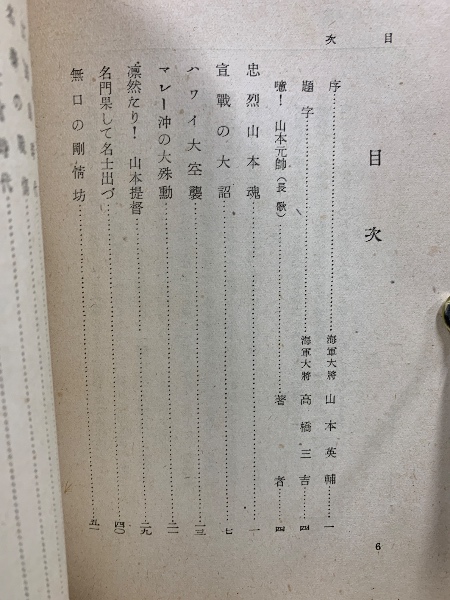 目次
目次
序……海軍大將 山本英輔……一
題字……海軍大將 高橋三吉……四
噫！山本元帥（長歌）……著者……四
忠烈山本魂……一
宣戰の大詔……七
ハワイ大空襲……一三
マレー沖の大殊勳……二二
凛然たり！山本提督……二九
名門果して名士出づ……四〇
無口の剛情坊……五一
6